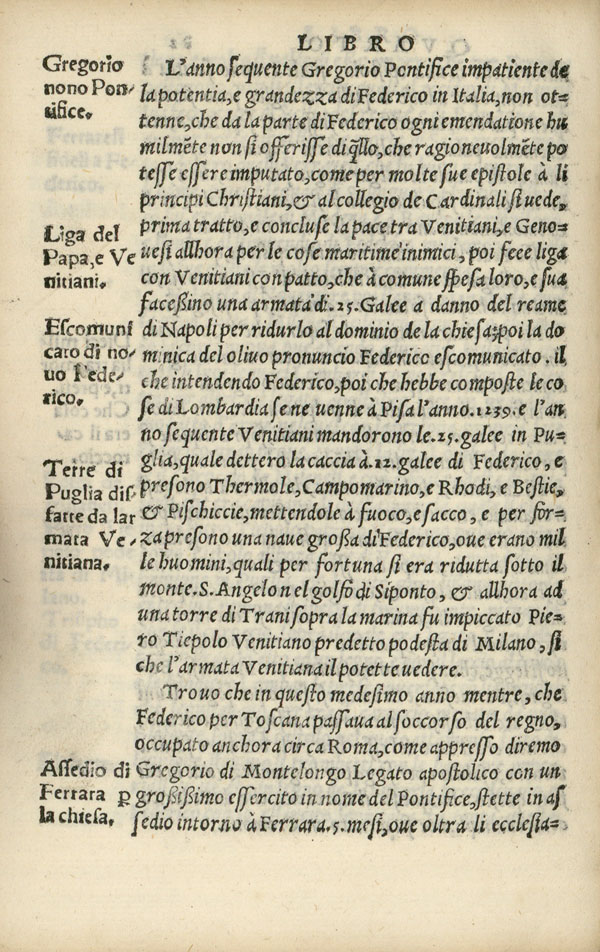 LIBRO
Gregorio
nono Pon-
tifice.
L'anno sequente Gregorio Pontifice impatiente de
la potentia, e grandezza di Federico in Italia, non ot=
tenne, che da la parte di Federico ogni emendatione hu
milmēte non si offerisse di q̄llo, che ragioneuolmēte po
tesse essere imputato, come per molte sue epistole à li
principi Christiani, & al collegio de Cardinali si uede,
prima tratto, e concluse la pace tra Venitiani, e Geno=
uesi allhora per le cose maritime inimici, poi fece liga
con Venitiani con patto, che à comune spesa loro, e sua
facessino una armata di .25. Galee a danno del reame
di Napoli per ridurlo al dominio de la chiesa; poi la do
minica del oliuo pronuncio Federico escomunicato. il
che intendendo Federico, poi che hebbe composte le co
se di Lombardia se ne uenne à Pisa l'anno. 1239. e l'an
no sequente Venitiani mandorono le .25. galee in Pu=
glia, quale dettero la caccia à .12. galee di Federico, e
presono Thermole, Campomarino, e Rhodi, e Bestie,
& Pischiccie, mettendole à fuoco, e sacco, e per for=
za presono una naue grossa di Federico, oue erano mil
le huomini, quali per fortuna si era ridutta sotto il
monte. S. Angelo nel golfo di Siponto, & allhora ad
una torre di Trani sopra la marina fu impiccato Pie=
ro Tiepolo Venitiano predetto podesta di Milano, si
che l'armata Venitiana il potette uedere.
Trouo che in questo medesimo anno mentre, che
Federico per Toscana passaua al soccorso del regno,
occupato anchora circa Roma, come appresso diremo
Gregorio di Montelongo Legato apostolico con un
grossissimo essercito in nome del Pontifice, stette in as
sedio intorno à Ferrara .5. mesi, oue oltra li ecclesia=
Liga del
Papa, e Ve
nitiani.
Escomuni
cato di no-
uo Fede-
rico.
Terre di
Puglia dis-
fatte da lar
mata Ve-
nitiana.
Assedio di
Ferrara ꝑ
la chiesa.